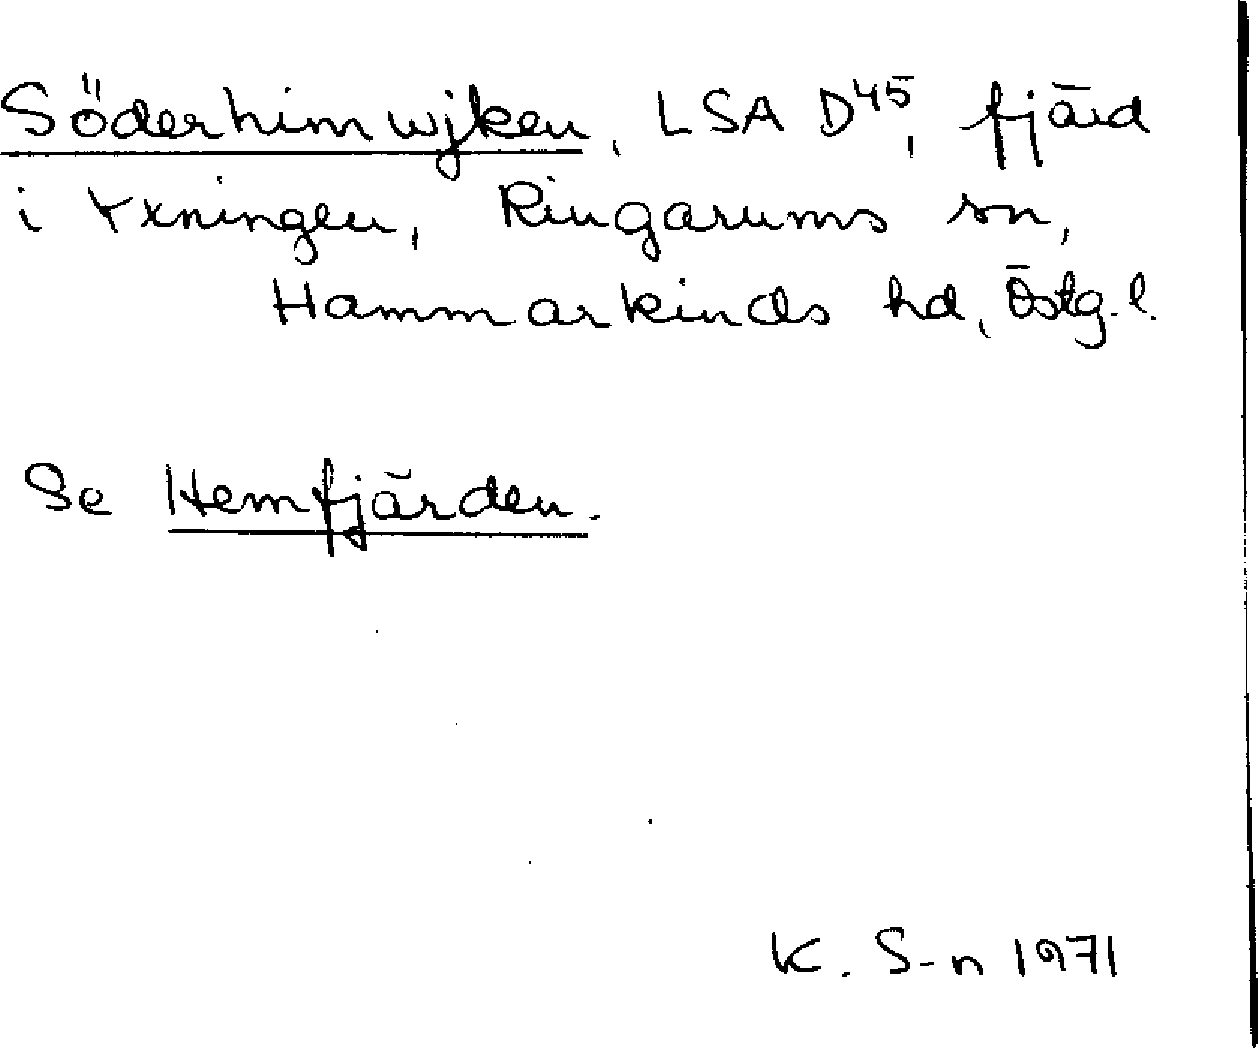 Söderhimwjken, LSA D45, fjärd
i Yxningen, Ringarums sn,
Hammarkinds hd, Östg. l.
Se Hemfjärden.
K. S-n 1971